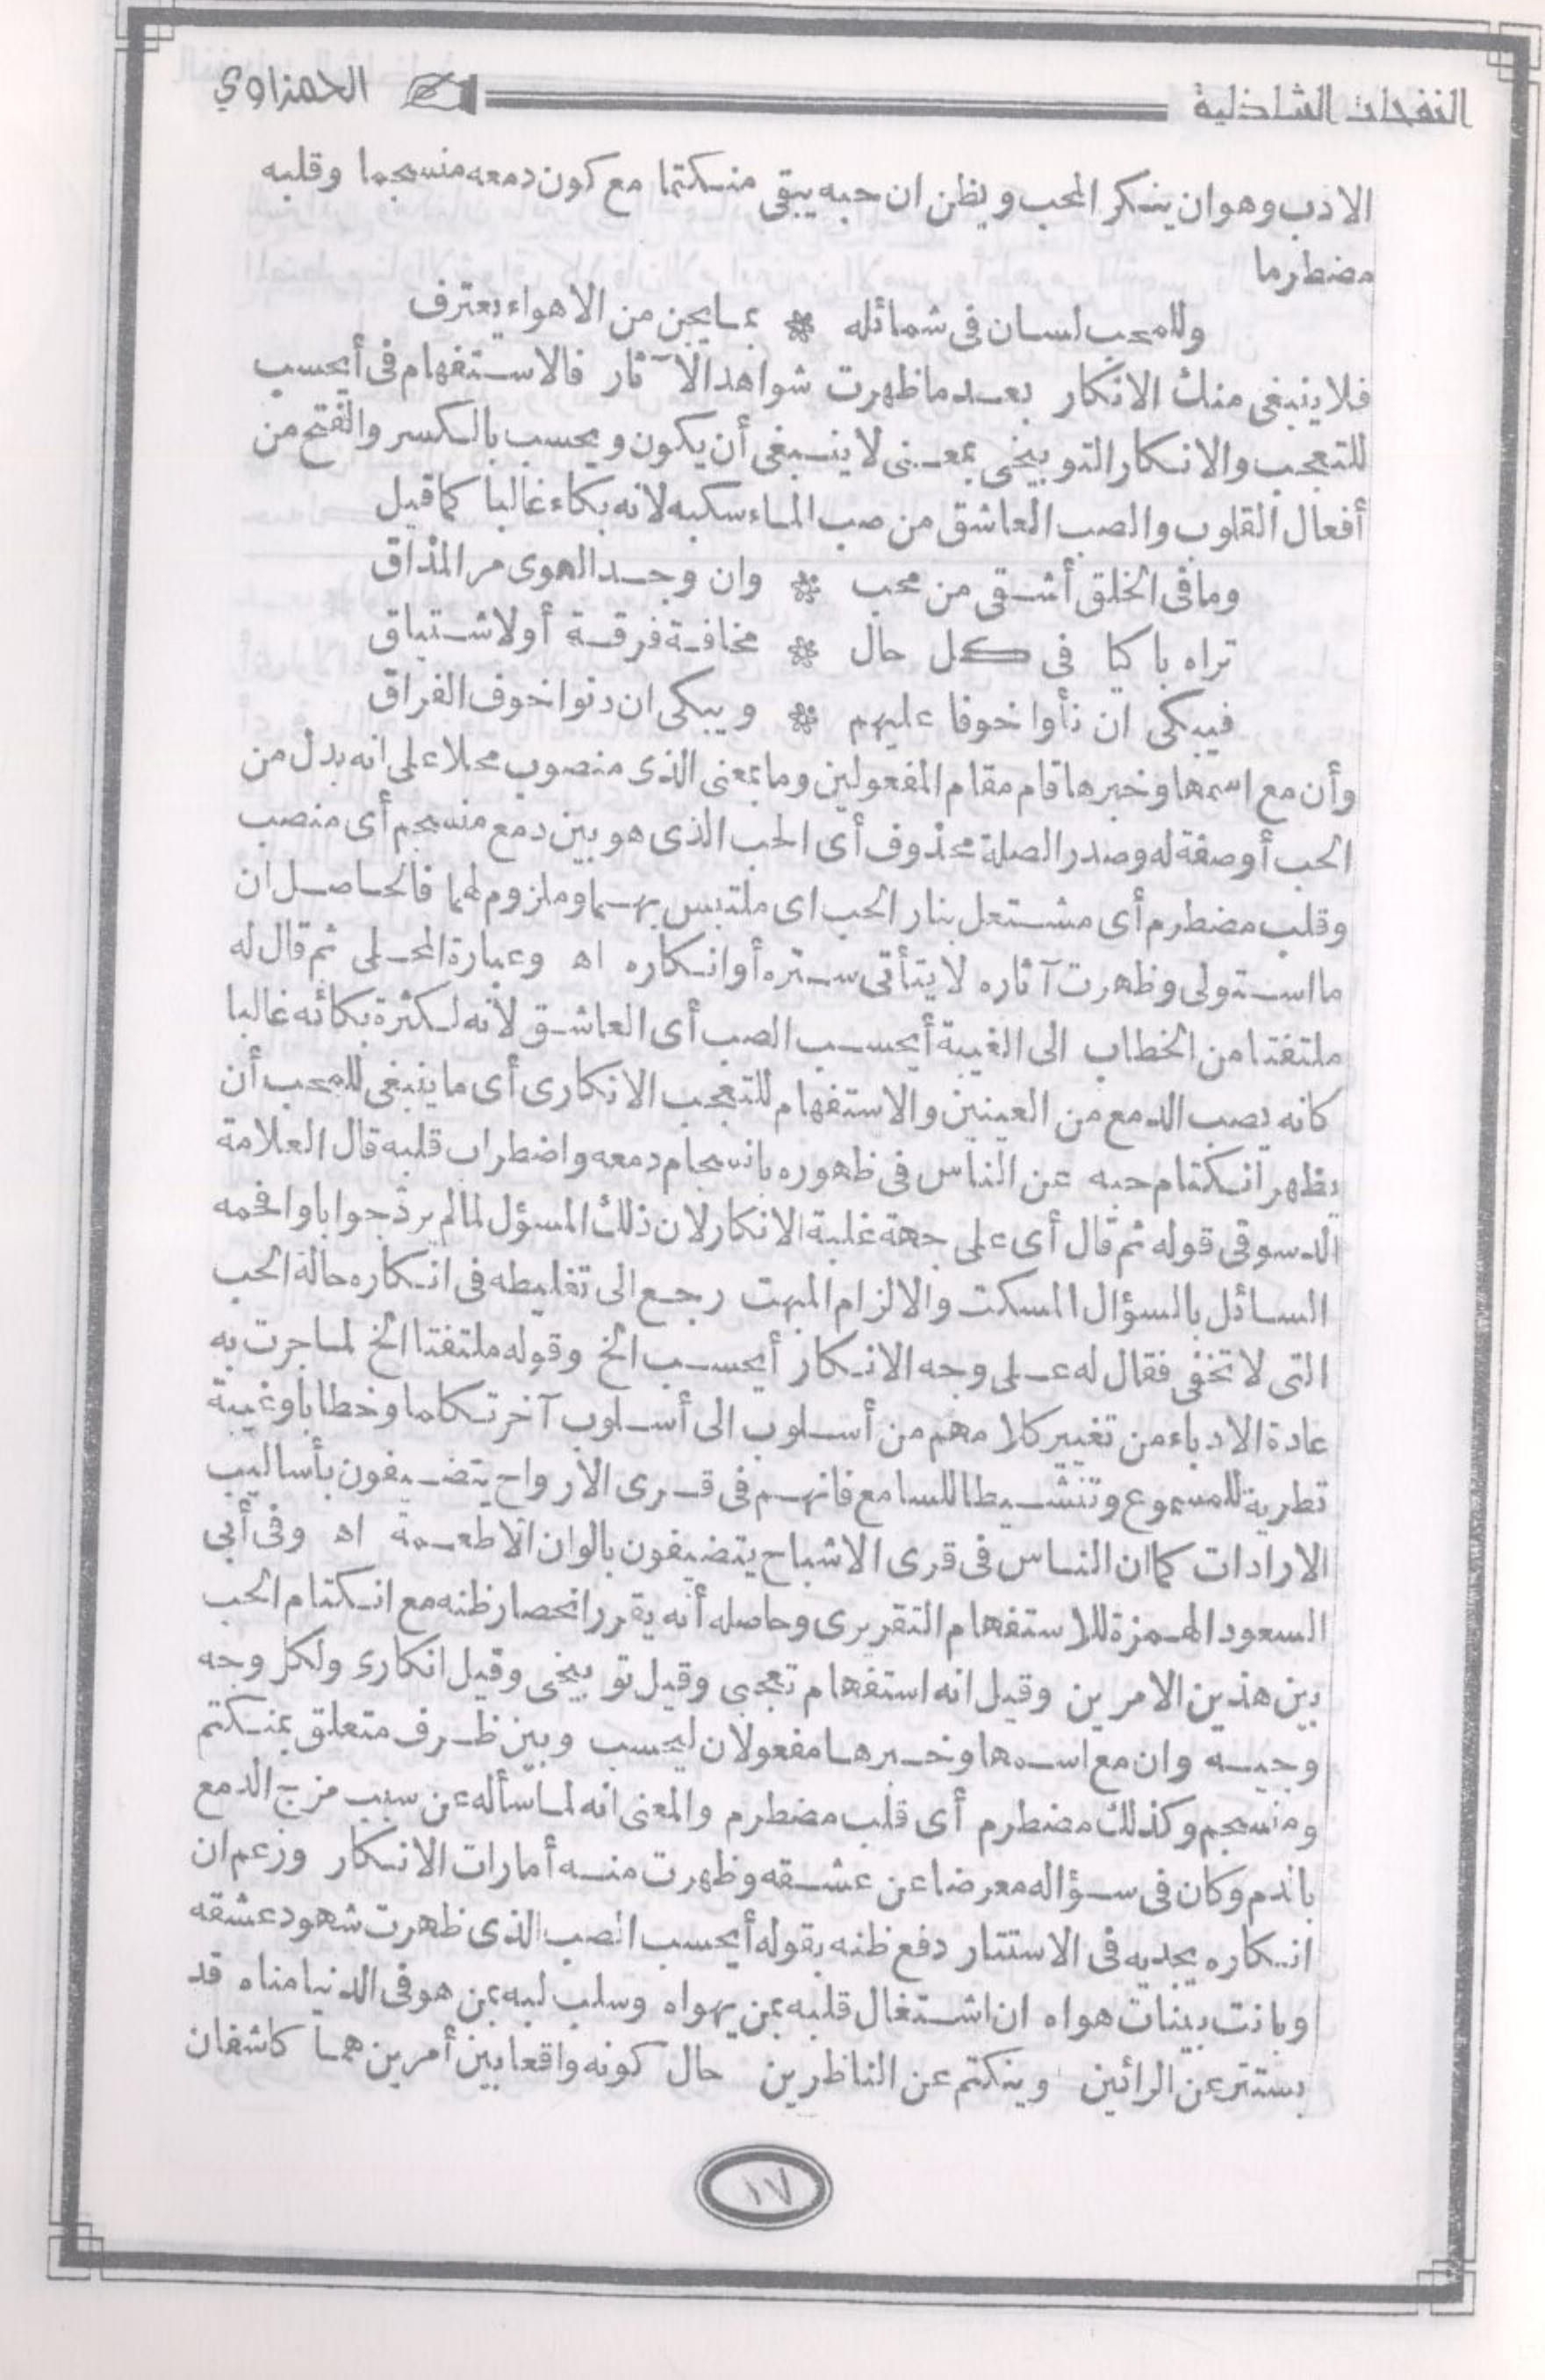 النفحات الشاذلية
الحمزاوي
الادب وهو ان ينكر المحب ويظن ان حبه يبقى منكتما مع كون دمعه منسجما وقلبه
مضطرما
وللمحب لسان فى شمائله * بما يجن من الاهواء يعترف
فلا ينبغى منك الانكار بعد ما ظهرت شواهد الآثار فالاستفهام فى أيحسب
للتعجب والانكار التوبيخى بمعنى لا ينبغى أن يكون ويحسب بالكسر والفتح من
أفعال القلوب والصب العاشق من صب الماء سكبه لانه بكاء غالبا كما قيل
وما فى الخلق أشقى من محب * وان وجد الهوى مر المذاق
تراه باكيا فى كل حال * مخافة فرقة أو لاشتياق
فيبكى ان نأوا خوفا عليهم * ويبكى ان دنوا خوف الفراق
وأن مع اسمها وخبرها قام مقام المفعولين وما بمعنى الذى منصوب محلا على انه بدل من
الحب أو صفة له وصدر الصلة محذوف أى الحب الذى هو بين دمع منسجم أى منصب
وقلب مضطرم أى مشتعل بنار الحب اى ملتبس بهما وملزوم لهما فالحاصل ان
ما استولى وظهرت آثاره لا يتأتى ستره أو انكاره اه وعبارة المحلى ثم قال له
ملتفتا من الخطاب الى الغيبة أيحسب الصب أى العاشق لأنه لكثرة بكائه غالبا
كانه يصب الدمع من العينين والاستفهام للتعجب الانكارى أى ما ينبغى للمحب أن
يظهر انكتام حبه عن الناس فى ظهوره بانسجام دمعه واضطراب قلبه قال العلامة
الدسوقى قوله ثم قال أى على جهة غلبة الانكار لان ذلك المسؤل لما لم يرد جوابا وافحمه
السائل بالسؤال المسكت والالزام المبهت رجع الى تغليطه فى انكاره حالة الحب
التى لا تخفى فقال له على وجه الانكار أيحسب الخ وقوله ملتفتا الخ لما جرت به
عادة الادباء من تغيير كلامهم من أسلوب الى أسلوب آخر تكلما وخطابا وغيبة
تطرية للمسموع وتنشيطا للسامع فانهم فى قرى الأرواح يتضيفون بأساليب
الارادات كما ان الناس فى قرى الاشباح يتضيفون بالوان الاطعمة اه وفى أبى
السعود الهمزة للاستفهام التقريرى وحاصله أنه يقرر انحصار ظنه مع انكتام الحب
بين هذين الامرين وقيل انه استفهام تعجبى وقيل توبيخى وقيل انكارى ولكل وجه
وجيه وان مع اسمها وخبرها مفعولان ليحسب وبين ظرف متعلق بمنكتم
ومنسجم وكذلك مضطرم أى قلب مضطرم والمعنى انه لما سأله عن سبب مزج الدمع
بالدم وكان فى سؤاله معرضا عن عشقه وظهرت منه أمارات الانكار وزعم ان
انكاره يجديه فى الاستتار دفع ظنه بقوله أيحسب الصب الذى ظهرت شهود عشقه
وبانت بينات هواه ان اشتغال قلبه بمن يهواه وسلب لبه بمن هو فى الدنيا مناه قد
يستتر عن الرائين وينكتم عن الناظرين حال كونه واقعا بين أمرين هما كاشفان
١٧